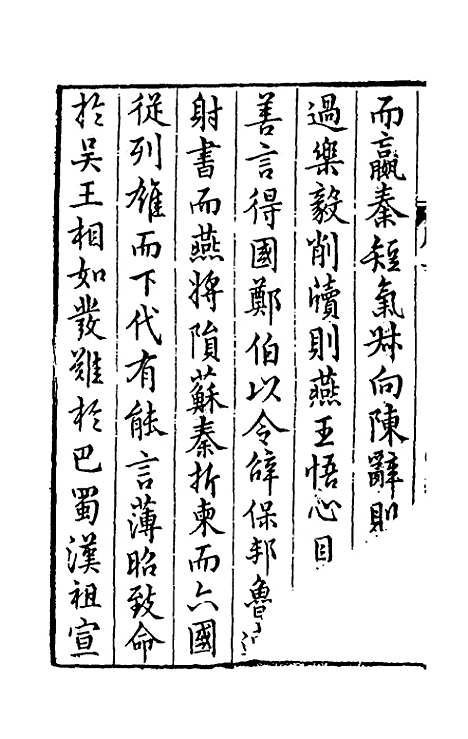 而嬴秦短氣叔向陳辭則
過樂毅削牘則燕王悟心目
善言得國鄭伯以令辭保邦魯
射書而燕將隕蘇秦折柬而六國
從列雄而下代有能言薄昭致命
於吴王相如發難於巴蜀漢祖宣